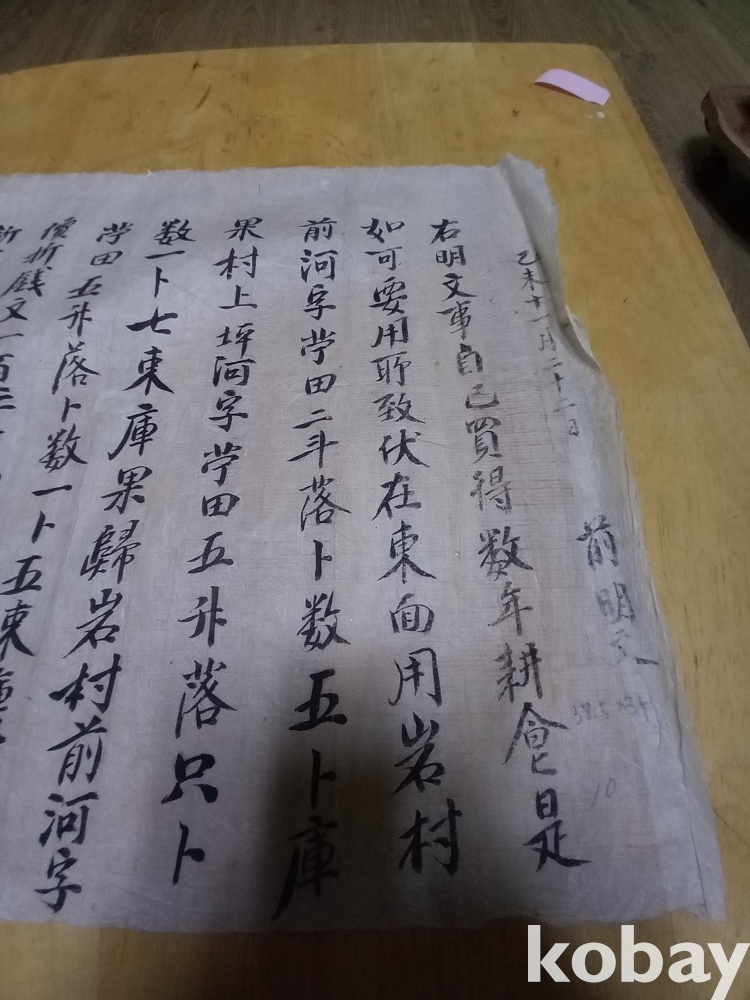 己未十一月二十一日 前明文
右明文事自己買得数年耕食是
如可要用所致伏在東面用岩村
前河字田二斗落卜数五卜庫
果村上坪河字田五升落只卜
数一卜七束庫果歸岩村前河字
田五升落卜数一卜五束庫
價折錢文一百三
38.5×34
10
kobay